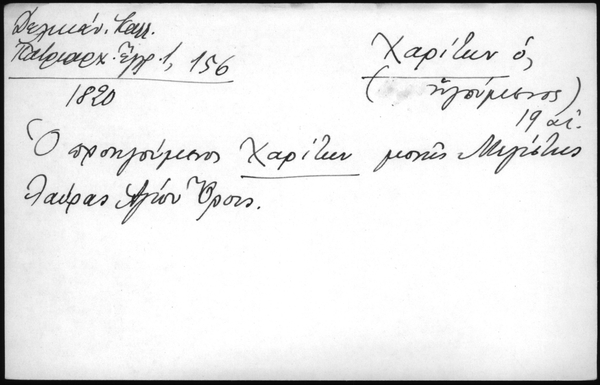 Δελικάν. Καλλ.
Πατριαρχ. Ἔγγρ. 1, 156
1820
Χαρίτων ὁ,
(ἡγούμενος)
19 αἰ.
Ὁ προηγούμενος Χαρίτων μονῆς Μεγίστης
Λαύρας Ἁγίου Ὄρους.